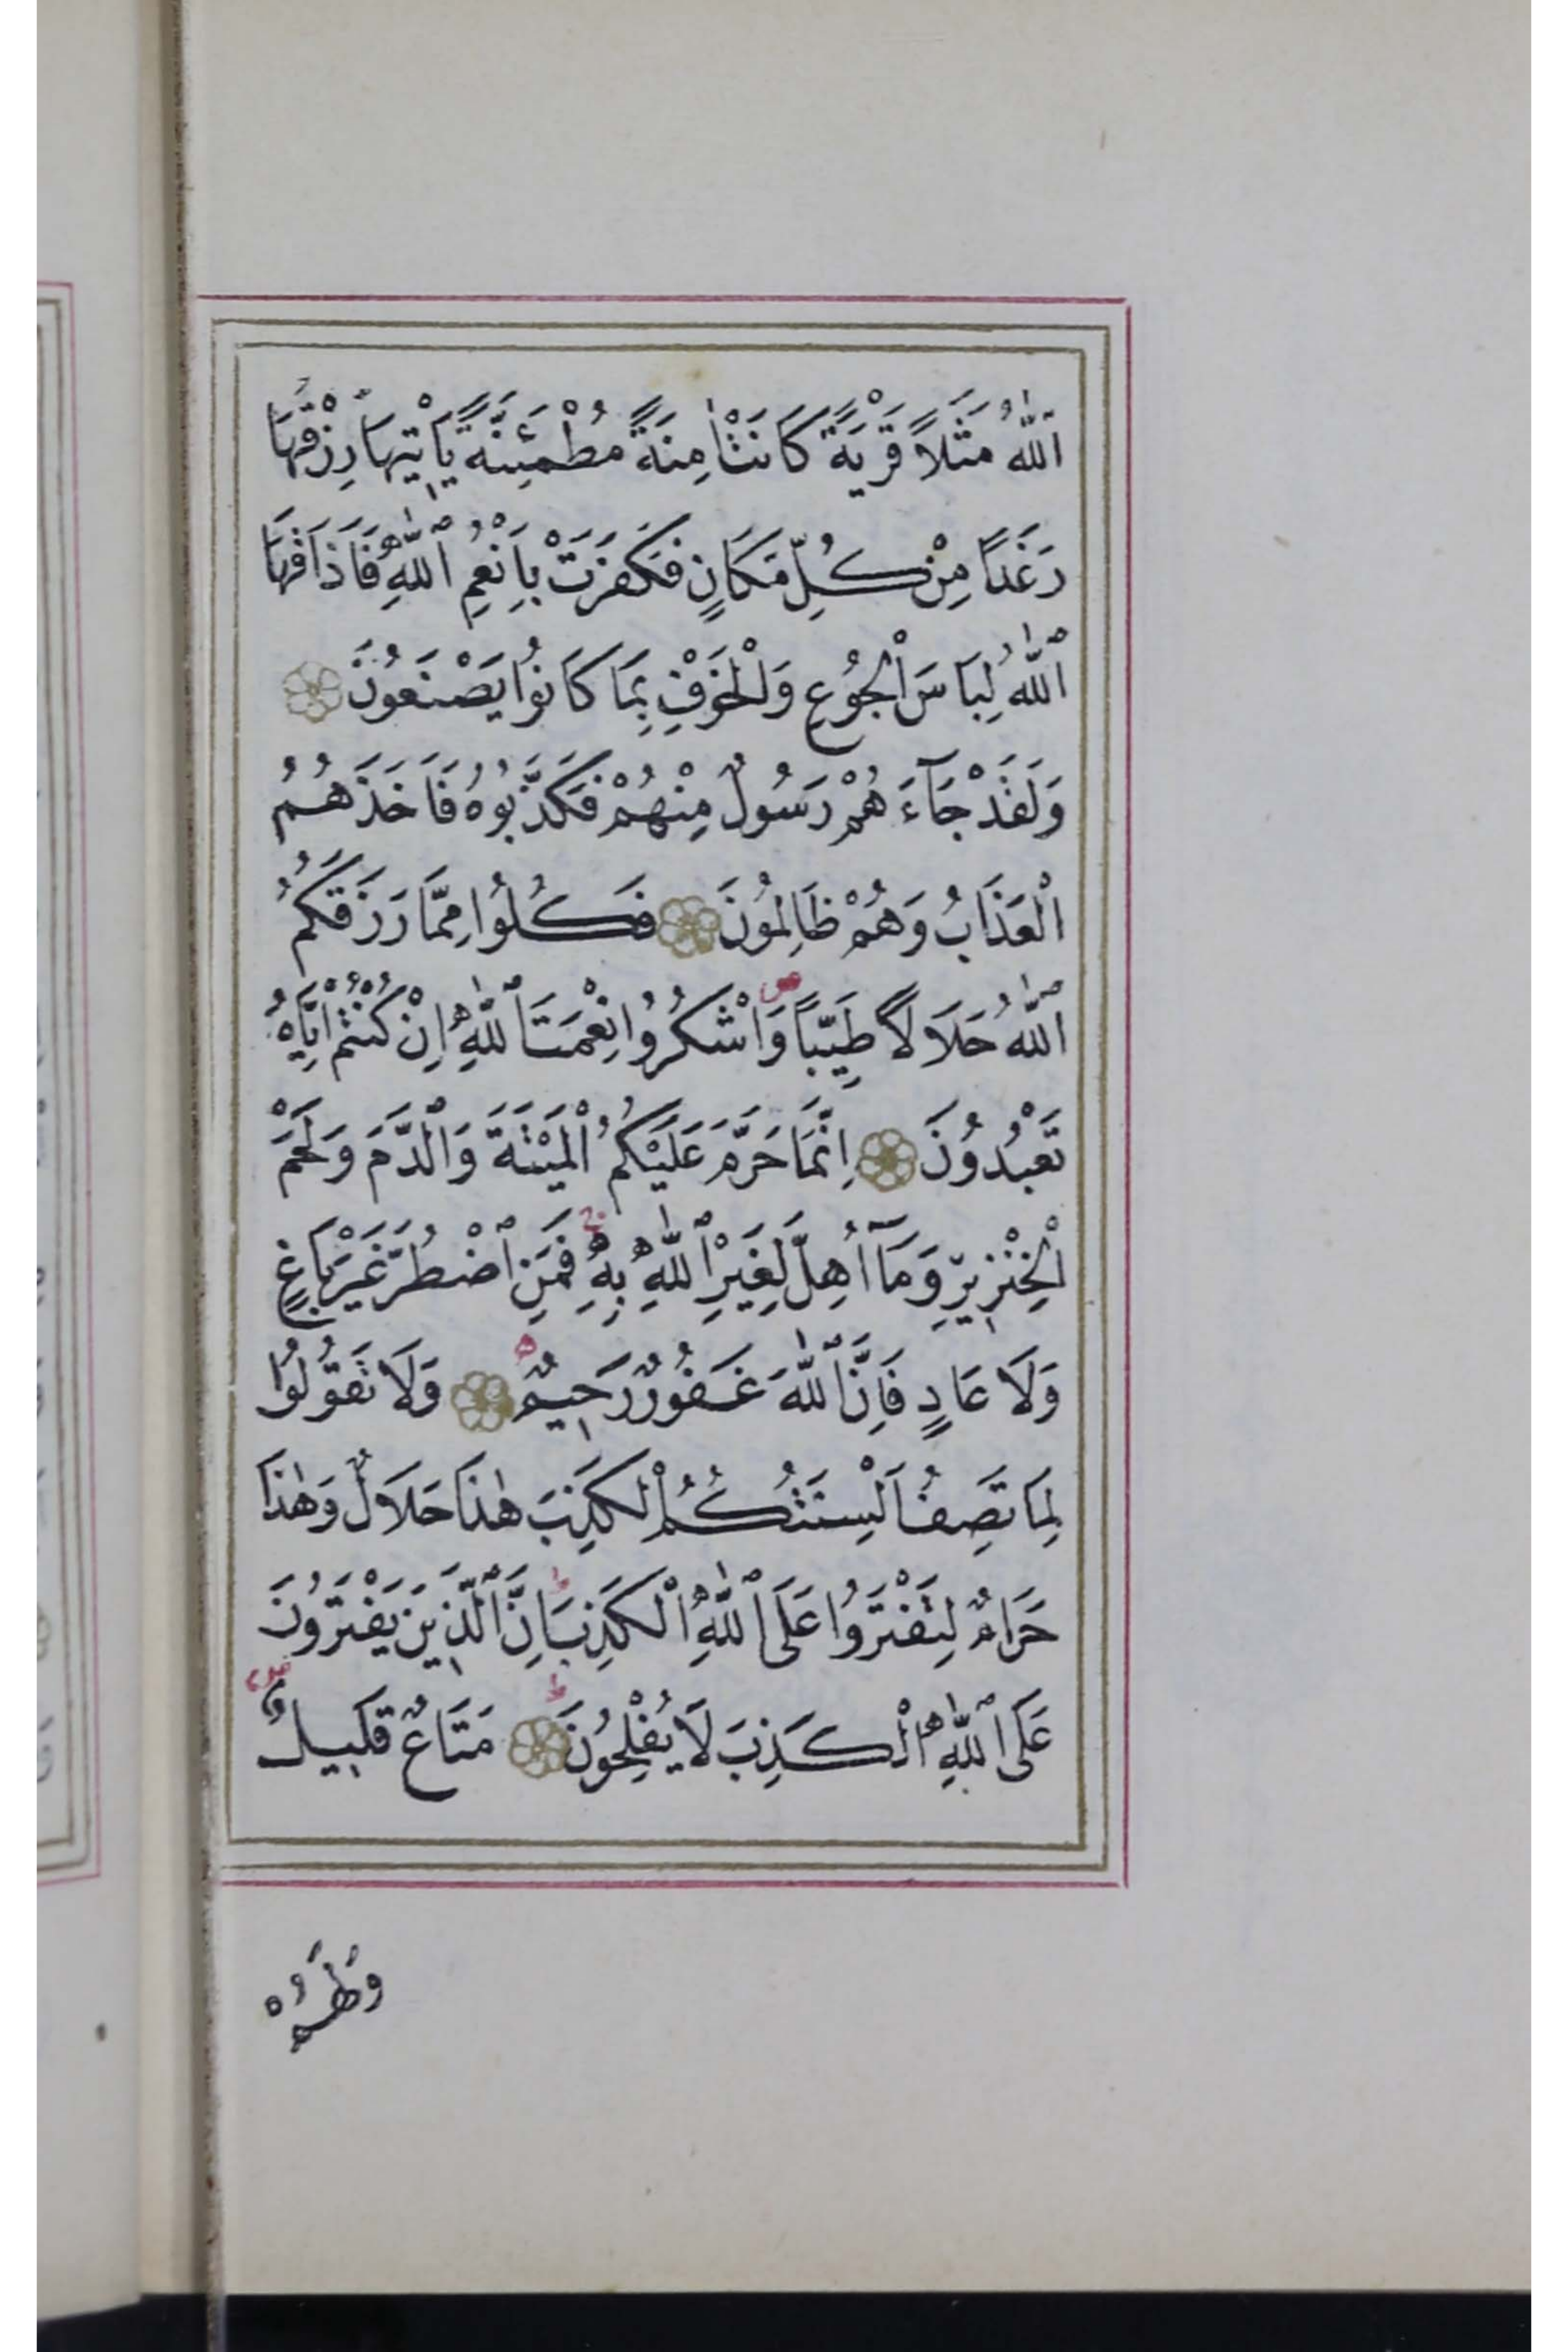 اَللّٰهُ مَثَلًا قَرْيَةً كَانَتْ اٰمِنَةً مُطْمَئِنَّةً يَأْتِيهَا رِزْقُهَا
رَغَدًا مِنْ كُلِّ مَكَانٍ فَكَفَرَتْ بِاَنْعُمِ اللّٰهِ فَاَذَاقَهَا
اللّٰهُ لِبَاسَ الْجُوعِ وَالْخَوْفِ بِمَا كَانُوا يَصْنَعُونَ
وَلَقَدْ جَآءَهُمْ رَسُولٌ مِنْهُمْ فَكَذَّبُوهُ فَاَخَذَهُمُ
الْعَذَابُ وَهُمْ ظَالِمُونَ فَكُلُوا مِمَّا رَزَقَكُمُ
اللّٰهُ حَلَالًا طَيِّبًا وَاشْكُرُوا نِعْمَتَ اللّٰهِ اِنْ كُنْتُمْ اِيَّاهُ
تَعْبُدُونَ اِنَّمَا حَرَّمَ عَلَيْكُمُ الْمَيْتَةَ وَالدَّمَ وَلَحْمَ
الْخِنْزِيرِ وَمَآ اُهِلَّ لِغَيْرِ اللّٰهِ بِهِ فَمَنِ اضْطُرَّ غَيْرَ بَاغٍ
وَلَا عَادٍ فَاِنَّ اللّٰهَ غَفُورٌ رَحِيمٌ وَلَا تَقُولُوا
لِمَا تَصِفُ اَلْسِنَتُكُمُ الْكَذِبَ هٰذَا حَلَالٌ وَهٰذَا
حَرَامٌ لِتَفْتَرُوا عَلَى اللّٰهِ الْكَذِبَ اِنَّ الَّذِينَ يَفْتَرُونَ
عَلَى اللّٰهِ الْكَذِبَ لَا يُفْلِحُونَ مَتَاعٌ قَلِيلٌ
وَلَهُمْ